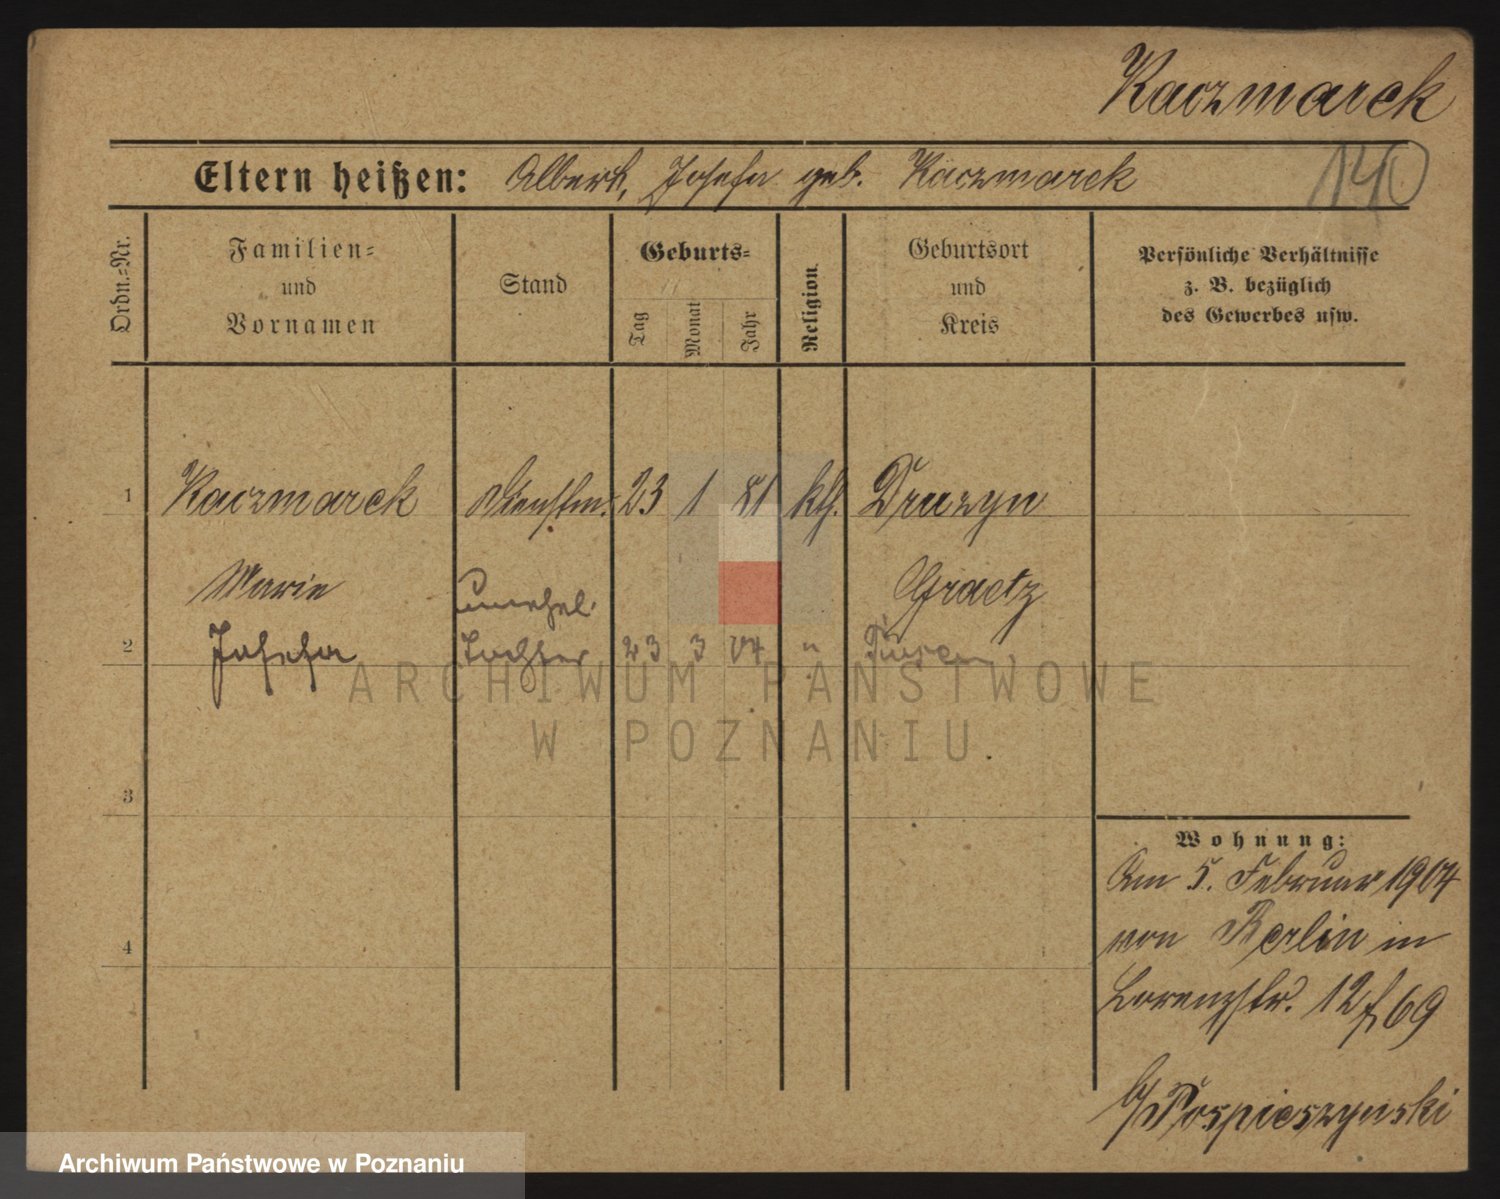 Kaczmarek
140
Eltern heißen: Albert, Josefa geb. Kaczmarek
Ordn.=Nr.
Familien=
und
Vornamen
Stand
Geburts=
Tag
Monat
Jahr
Religion
Geburtsort
und
Kreis
Persönliche Verhältnisse
z. B. bezüglich
des Gewerbes usw.
1 Kaczmarek Dienstm. 23 1 81 kth. Druzyn
Marie unehel. Graetz
2 Josefa Tochter 23 3 04 "
3
4
Wohnung:
Am 5. Februar 1904
von Berlin in
Lorenzstr. 12 f 69
b/ Pospieszynski
ARCHIWUM PAŃSTWOWE
W POZNANIU
Archiwum Państwowe w Poznaniu